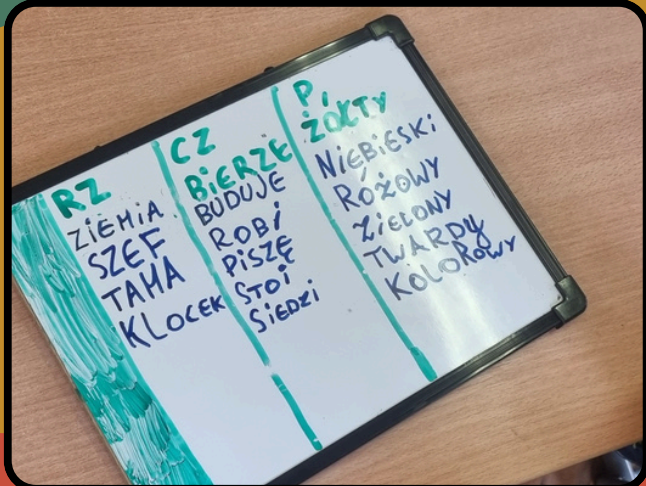 RZ
ZIEMIA
SZEF
TAMA
KLOCEK
CZ
BIERZE
BUDUJE
ROBI
PISZĘ
STOI
SIEDZI
P,
ŻÓŁTY
NIEBIESKI
RÓŻOWY
ZIELONY
TWARDY
KOLOROWY